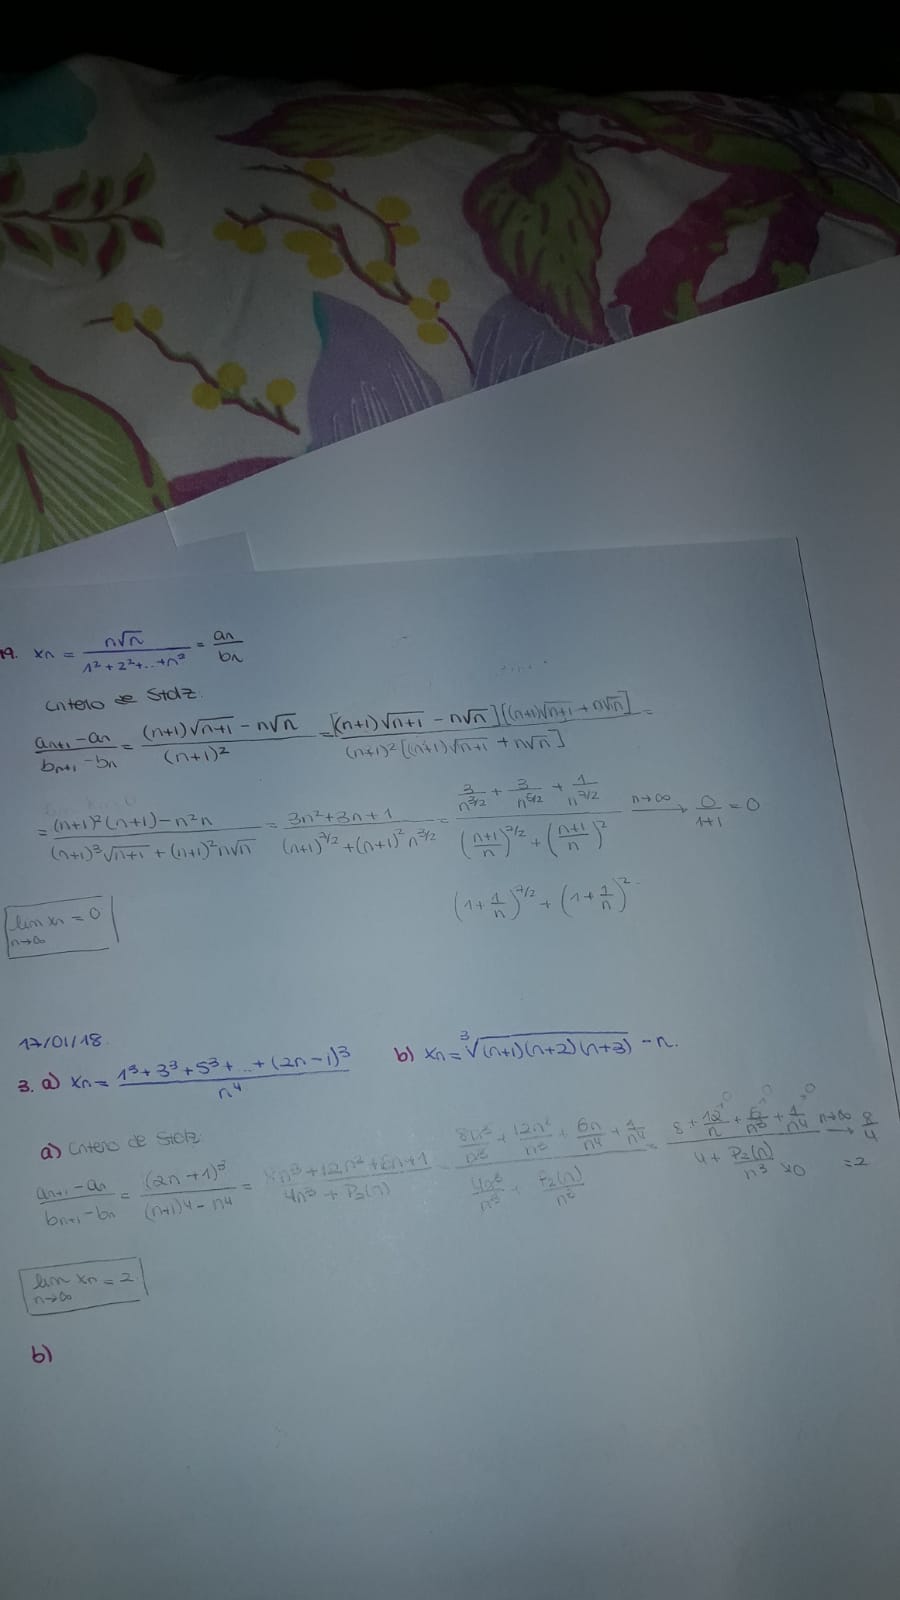 19. xn = n√n / 1²+2²+...+n² = an / bn
Criterio de Stolz.
an+1 - an / bn+1 - bn = (n+1)√n+1 - n√n / (n+1)² = [(n+1)√n+1 - n√n][(n+1)√n+1 + n√n] / (n+1)²[(n+1)√n+1 + n√n] =
= (n+1)²(n+1) - n²n / (n+1)³√n+1 + (n+1)²n√n = 3n²+3n+1 / (n+1)^7/2 + (n+1)² n^3/2 = 3/n^3/2 + 3/n^5/2 + 1/n^7/2 / (n+1/n)^7/2 + (n+1/n)² n→∞ → 0/1+1 = 0
(1+1/n)^7/2 + (1+1/n)²
lim xn = 0
n→∞
17/01/18.
3. a) xn = 1³+3³+5³+...+(2n-1)³ / n⁴ b) xn = ³√(n+1)(n+2)(n+3) - n.
a) Criterio de Stolz
an+1 - an / bn+1 - bn = (2n+1)³ / (n+1)⁴ - n⁴ = 8n³+12n²+6n+1 / 4n³ + P₂(n) = 8n³/n³ + 12n²/n³ + 6n/n⁴ + 1/n⁴ / 4n³/n³ + P₂(n)/n³ = 8 + 12/n + 6/n³ + 1/n⁴ / 4 + P₂(n)/n³ n→∞ → 8/4 = 2
lim xn = 2
n→∞
b)